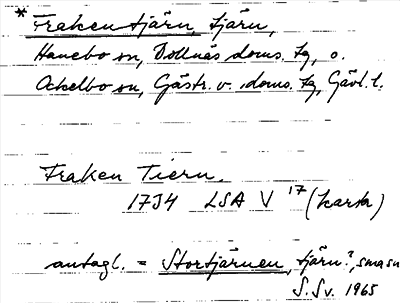 * Frakentjärn, tjärn,
Hanebo sn, Bollnäs doms. tg, o.
Ockelbo sn, Gästr. v. doms. tg, Gävl. l.
Fraken Tiern.
1734 LSA V 17 (karta)
antagl. = Stortjärnen, tjärn?, sma sn
S. Sv. 1965